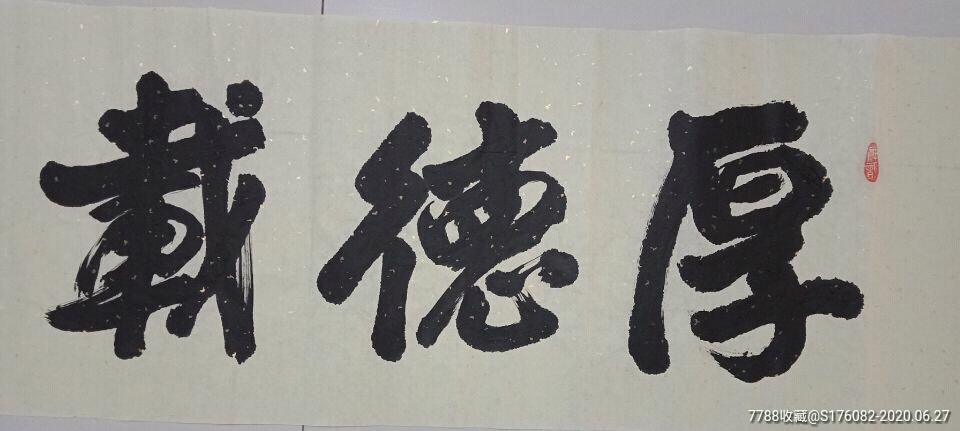 厚德載
7788收藏@S176082-2020.06.27